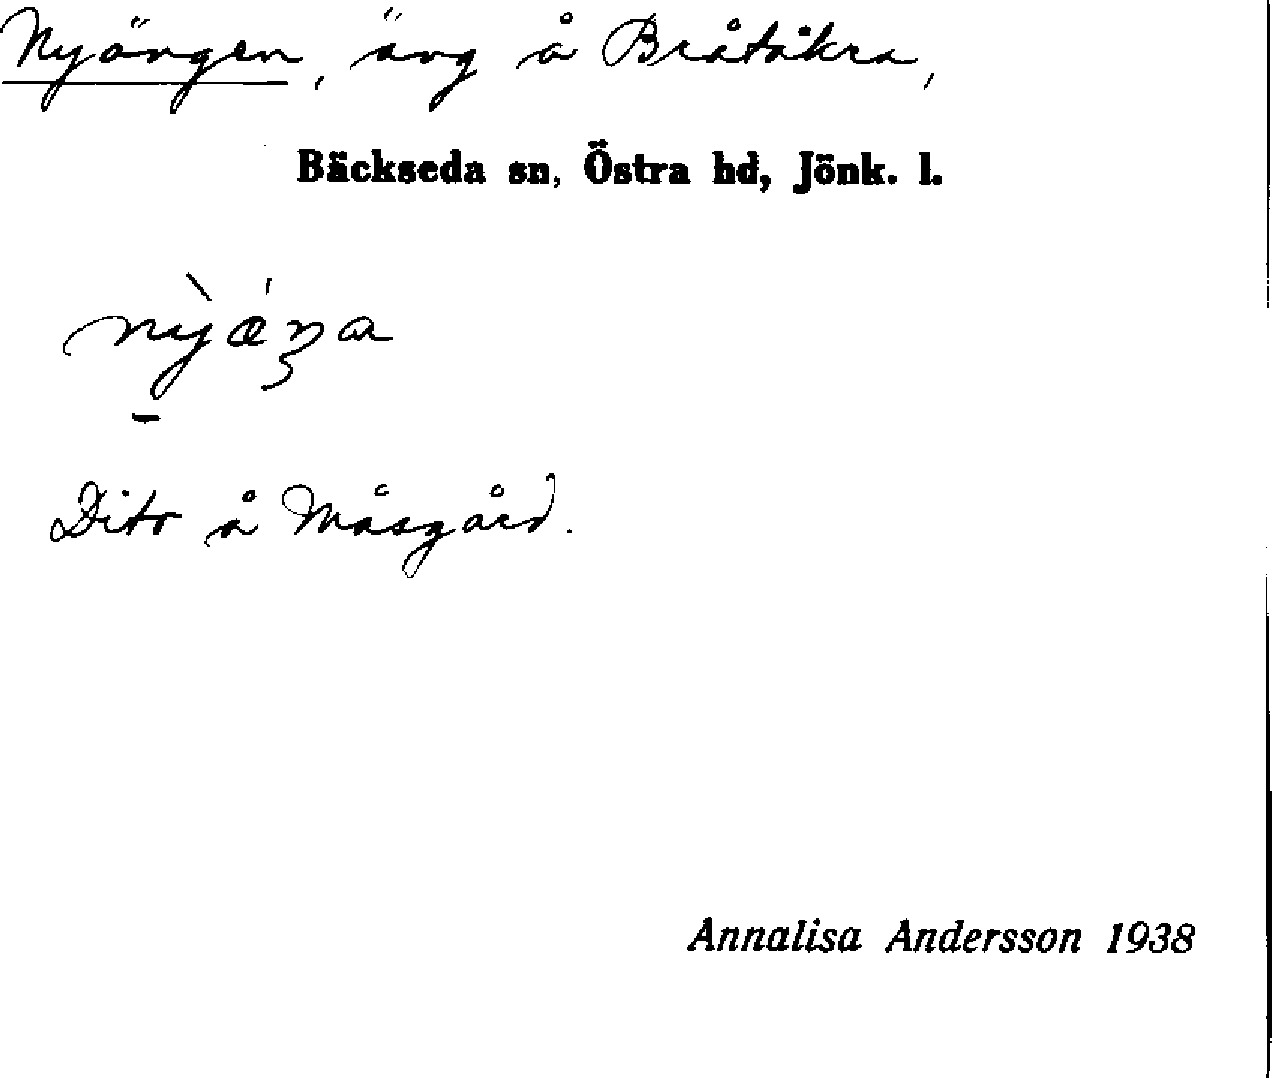 Nyängen, äng å Bråtåkra,
Bäckseda sn, Östra hd, Jönk. l.
nỳǽŋa
Dito å Måsgård.
Annalisa Andersson 1938